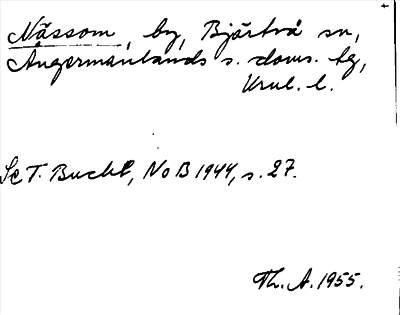 Nässom, by, Bjärtrå sn,
Ångermanlands s. doms. tg,
Vnl. l.
Se T. Bucht, NoB 1944, s. 27.
Th. A. 1955.